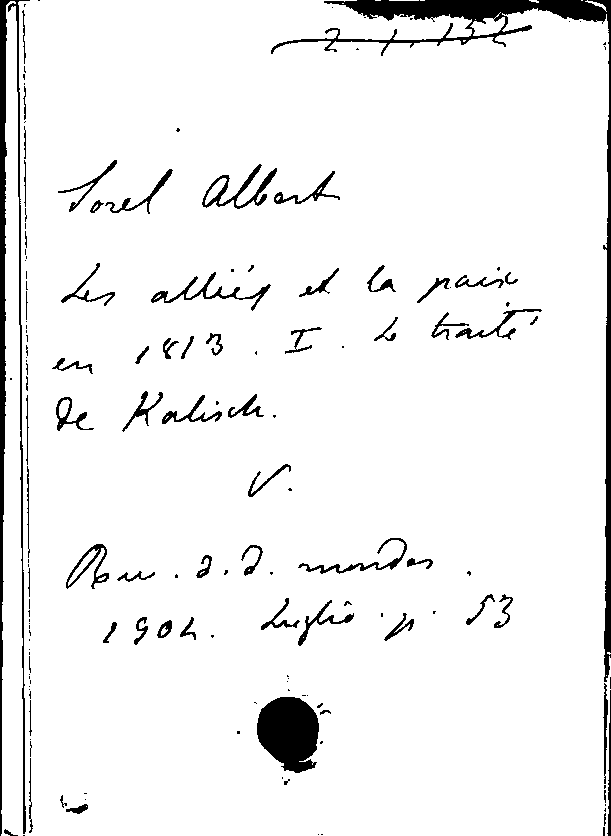 2. 1. 152
Sorel Albert
Les alliés et la paix
en 1813. I. Le traité
de Kalisch.
V.
Rev. d. d. mondes.
1904. Luglio. p. 53